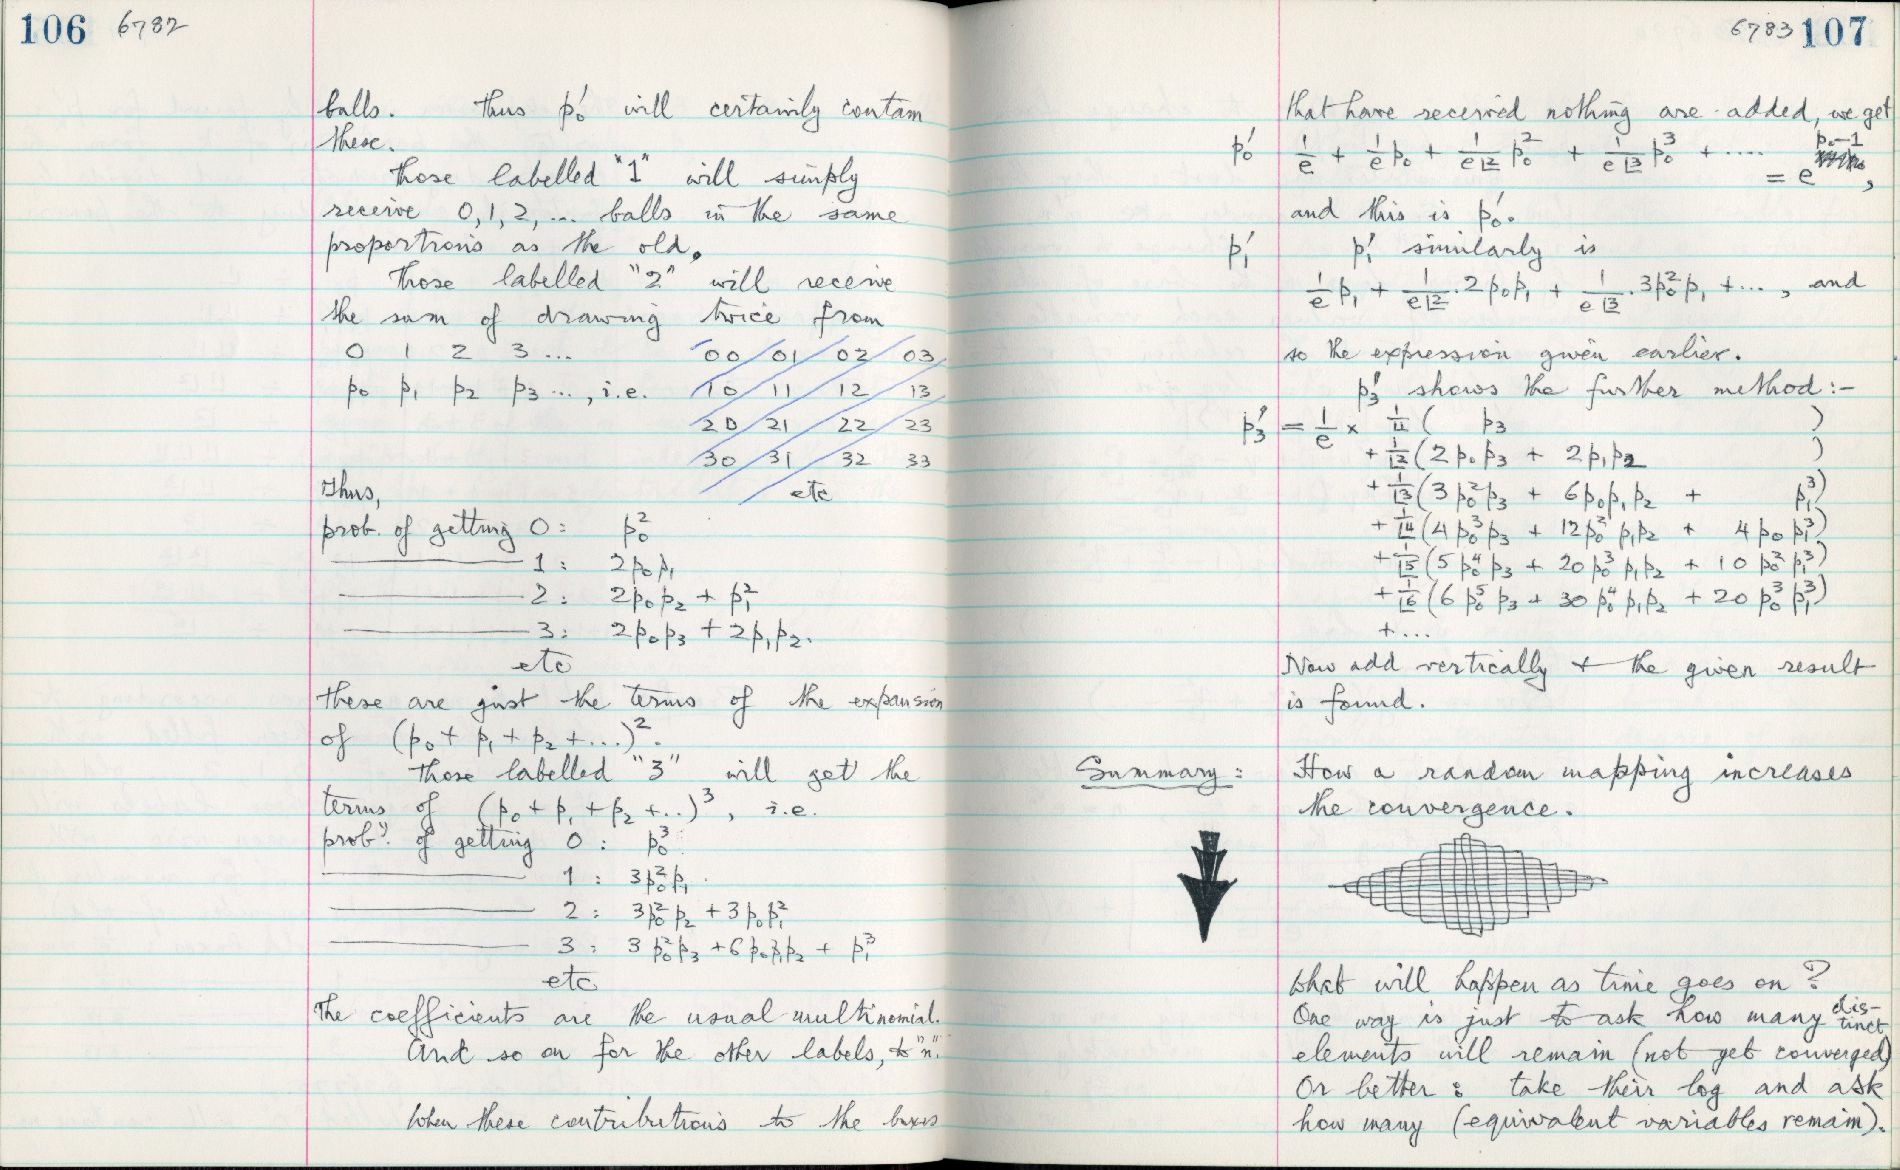 106 6782
balls. Thus p₀′ will certainly contain
these.
Those labelled "1" will simply
receive 0, 1, 2, ... balls in the same
proportions as the old.
Those labelled "2" will receive
the sum of drawing twice from
0 1 2 3 ... 00 01 02 03
p₀ p₁ p₂ p₃ ..., i.e. 10 11 12 13
20 21 22 23
30 31 32 33
Thus, etc
prob. of getting 0: p₀²
——— 1: 2p₀p₁
——— 2: 2p₀p₂ + p₁²
——— 3: 2p₀p₃ + 2p₁p₂.
etc
These are just the terms of the expansion
of (p₀ + p₁ + p₂ + ...)².
Those labelled "3" will get the
terms of (p₀ + p₁ + p₂ + ..)³, i.e.
probʸ. of getting 0: p₀³
——— 1: 3p₀²p₁
——— 2: 3p₀²p₂ + 3p₀p₁²
——— 3: 3p₀²p₃ + 6p₀p₁p₂ + p₁³
etc
The coefficients are the usual multinomial.
And so on for the other labels, to "n".
When these contributions to the boxes
6783 107
that have received nothing are added, we get
p₀′ 1/e + 1/e p₀ + 1/e|2 p₀² + 1/e|3 p₀³ + ....
= e^(p₀−1),
and this is p₀′.
p₁′ p₁′ similarly is
1/e p₁ + 1/e|2 . 2p₀p₁ + 1/e|3 . 3p₀²p₁ + ..., and
so the expression given earlier.
p₃′ shows the further method:-
p₃′ = 1/e × 1/|1 ( p₃ )
+ 1/|2 (2p₀p₃ + 2p₁p₂ )
+ 1/|3 (3p₀²p₃ + 6p₀p₁p₂ + p₁³)
+ 1/|4 (4p₀³p₃ + 12p₀²p₁p₂ + 4p₀p₁³)
+ 1/|5 (5p₀⁴p₃ + 20p₀³p₁p₂ + 10p₀²p₁³)
+ 1/|6 (6p₀⁵p₃ + 30p₀⁴p₁p₂ + 20p₀³p₁³)
+ ...
Now add vertically & the given result
is found.
Summary: How a random mapping increases
the convergence.
What will happen as time goes on?
One way is just to ask how many distinct
elements will remain (not yet converged)
Or better: take their log and ask
how many (equivalent variables remain).